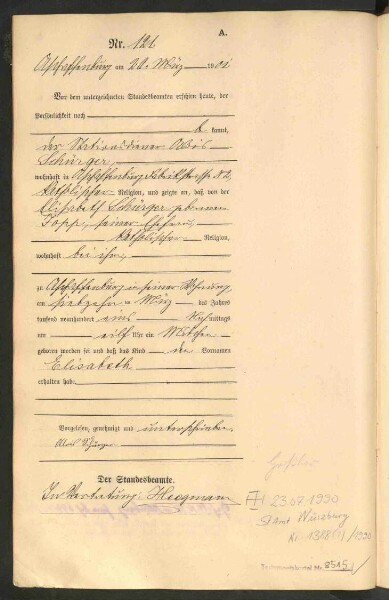 A.
Nr. 121
Aschaffenburg am 20. März 1901
Vor dem unterzeichneten Standesbeamten erschien heute, der
Persönlichkeit nach
bekannt,
der Stationsdiener Alois
Schürger
wohnhaft in Aschaffenburg
katholischer Religion, und zeigte an, daß von der
Elisabeth Schürger geborenen
Popp, seiner Ehefrau,
katholischer Religion,
wohnhaft bei ihm,
zu Aschaffenburg in seiner Wohnung
am siebzehnten März des Jahres
tausend neunhundert eins Nachmittags
um elf Uhr ein Mädchen
geboren worden sei und daß das Kind die Vornamen
Elisabeth
erhalten habe.
Vorgelesen, genehmigt und unterschrieben
Alois Schürger
Der Standesbeamte.
In Vertretung:
23.07.1990
StAmt Würzburg
Nr. /1990